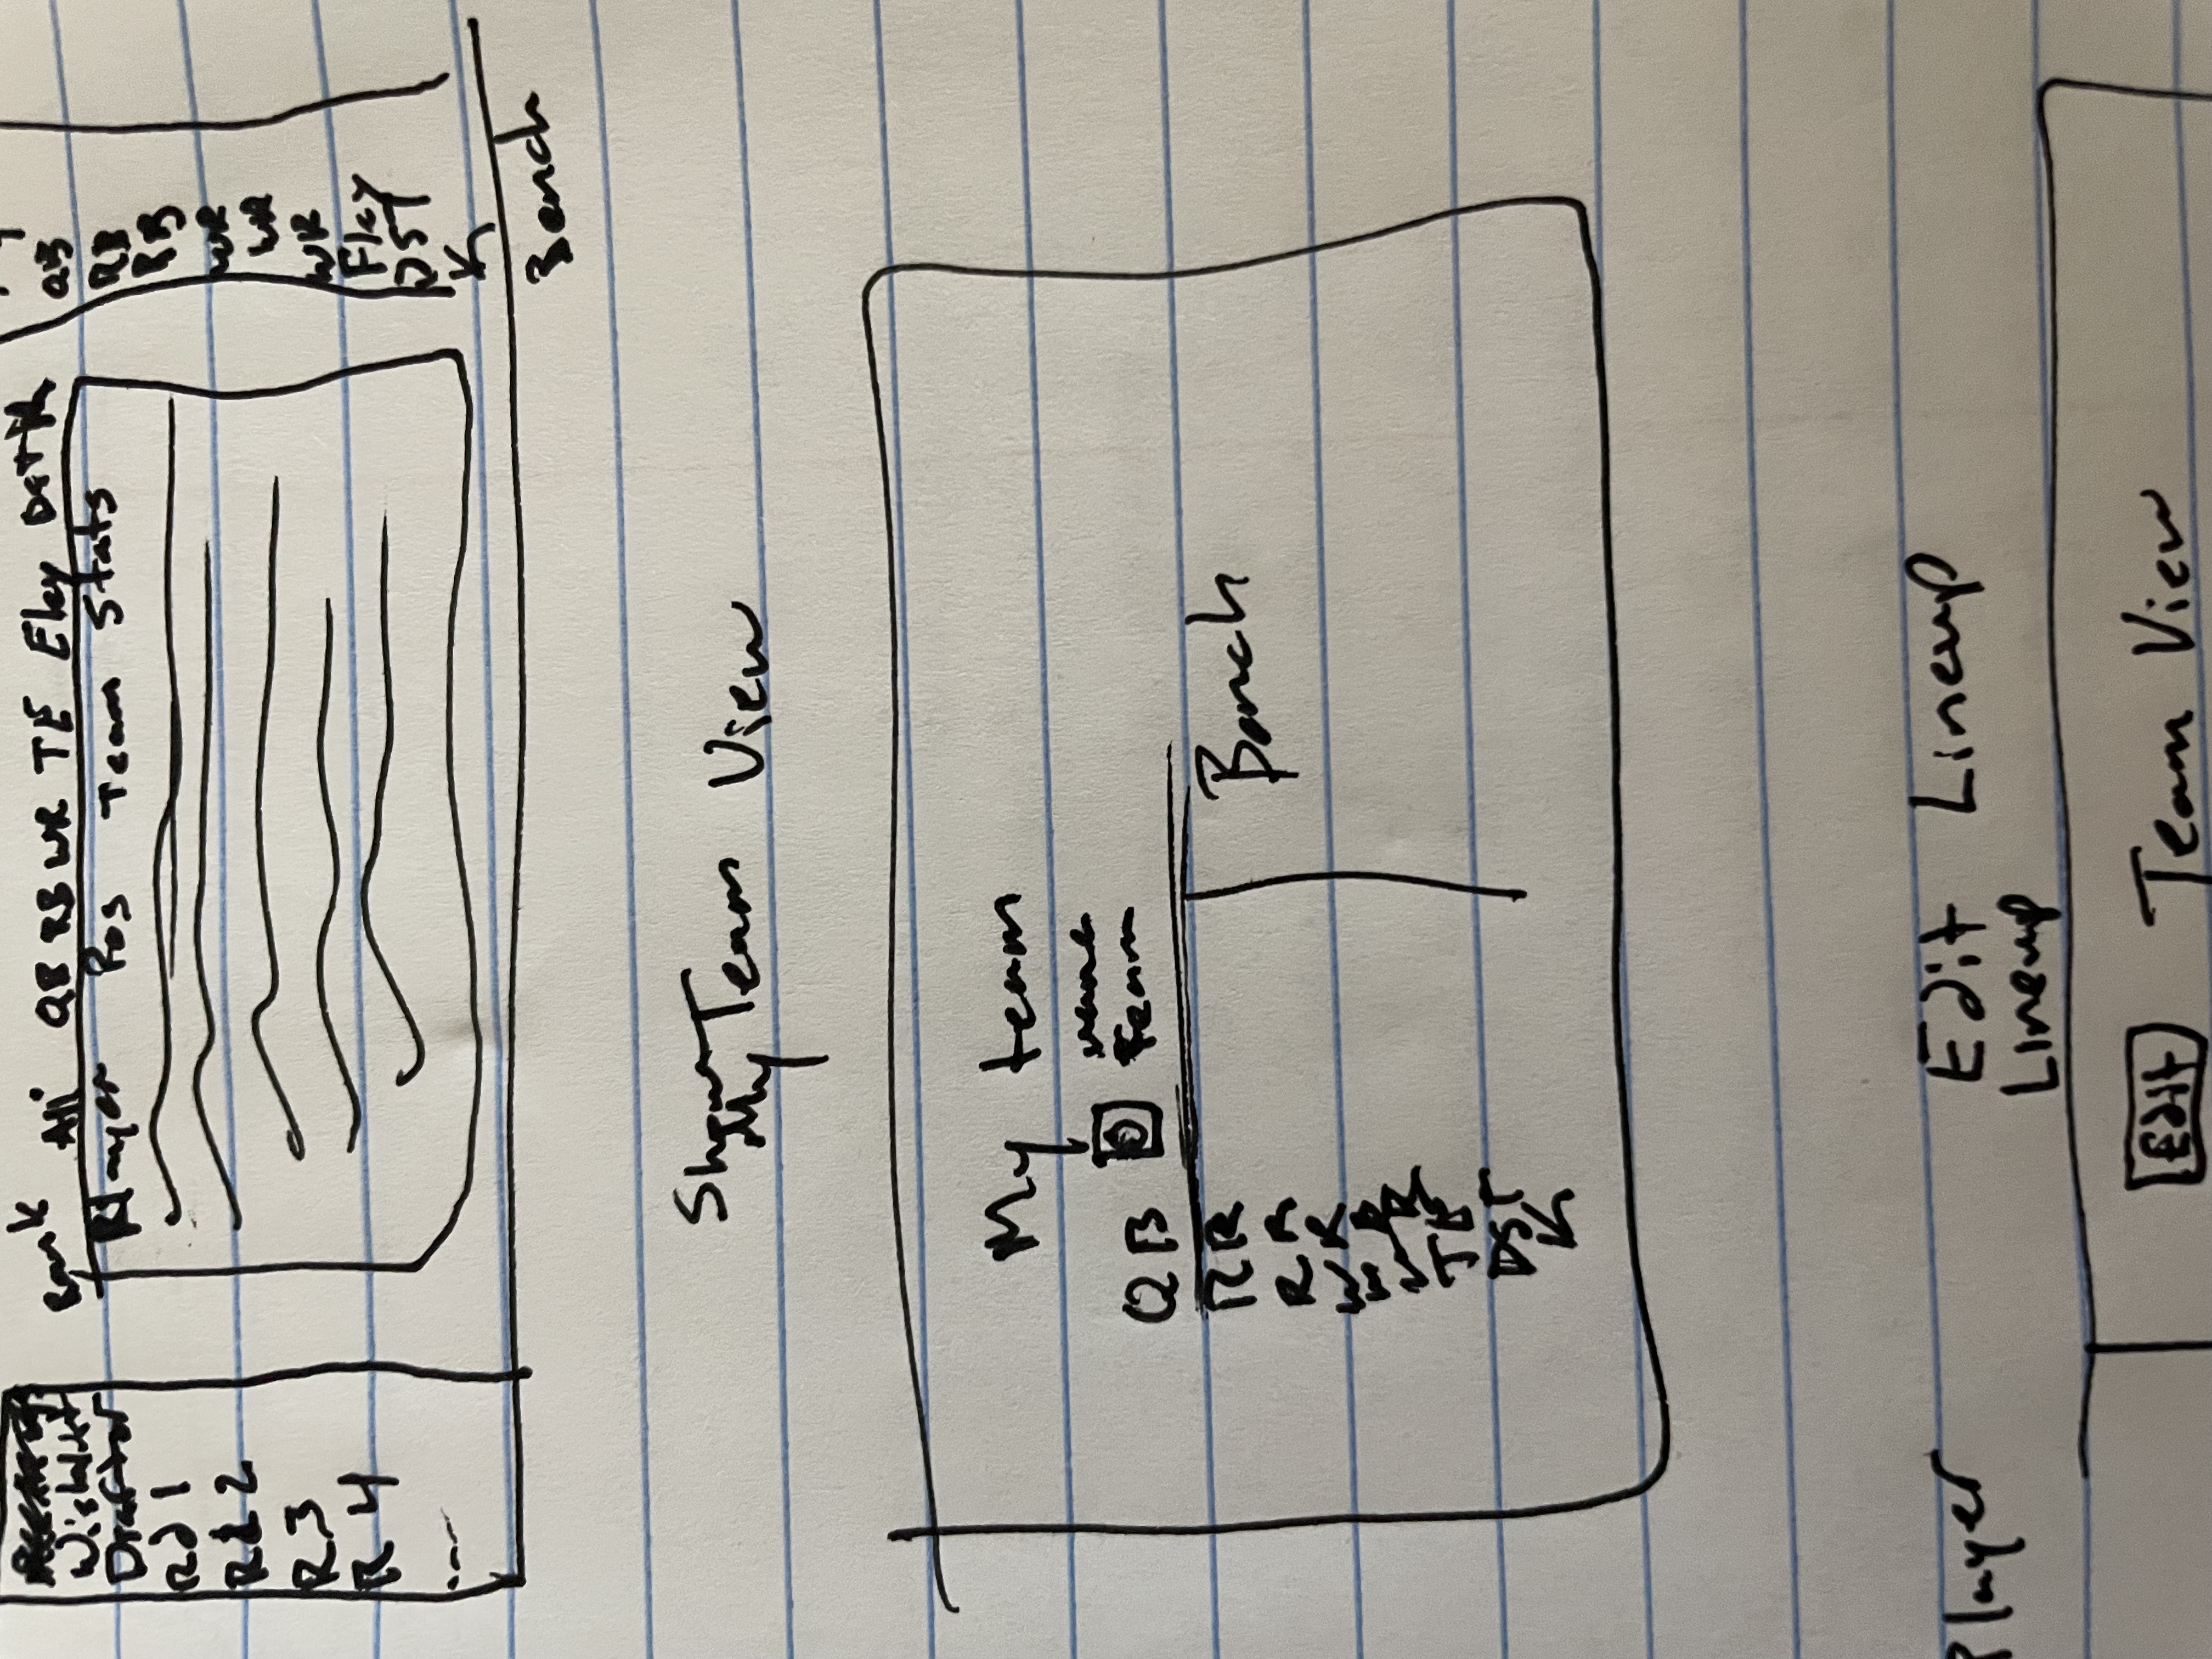 Wishlist
Drafter
Rd 1
Rd 2
R 3
R 4
...
Rank All QB RB WR TE Flex DST K
Player Pos Team Stats
QB
RB
RB
WR
WR
WR
Flex
DST
K
Bench
Show
My Team View
My team
QB
name
Team
RB
RB
WR
WR
WR
TE
DST
K
Bench
Player
Edit Lineup
Lineup
Edit Team View